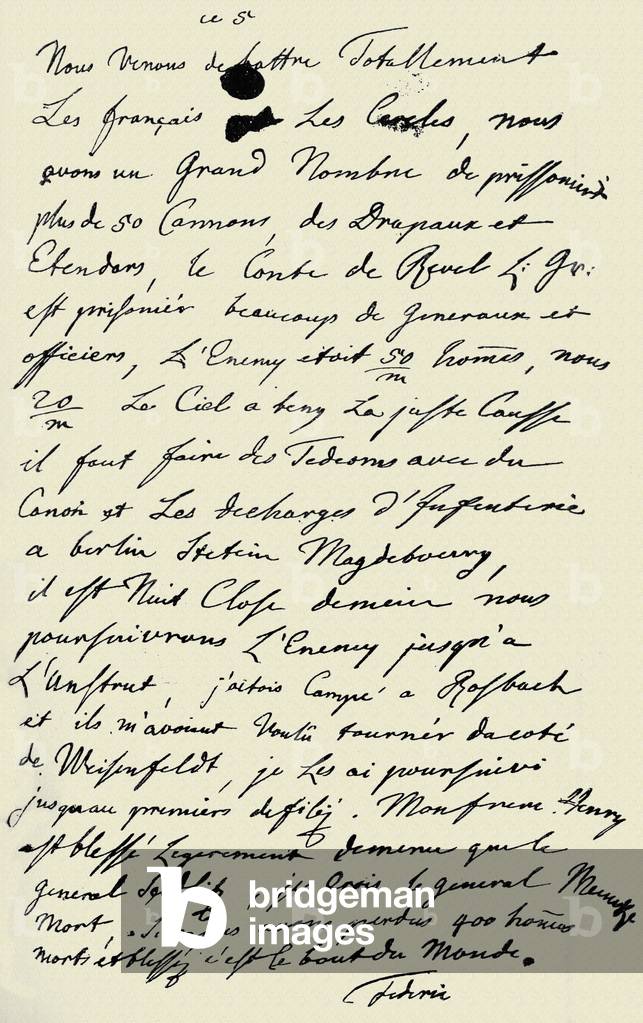 ce 5
Nous Venons de battre Totallement
Les français Les Cercles, nous
avons un Grand Nombre de prissoniérs
plus de 50 Cannons, des Drapaux et
Etendars, le Conte de Revel L: Gr:
est prisoniér beaucoup de Generaux et
officiers, L'Enemy étoit 50/m hom̅es, nous
20/m Le Ciel a beny La juste Causse
il faut faire des Tedeoms avec du
Canon et Les decharges d'Infenterie
a berlin Stetein Magdebourg,
il est Nuit Close demein nous
poursuivrons L'Enemy jusqu'a
L'Unstrut, j'aitois Campé a Rosbach
et ils m'avoient Voulû tournér du coté
de Weisenfeldt, je Les ai poursuivi
jusqu'au premiers defiléz. Mon frere Henry
est blessé Legerement dememe que le
general je Crois le general
Mort, perdus 400 hom̅es
morts et blesséz c'est le bout du Monde.
Federic
bridgeman
images
b